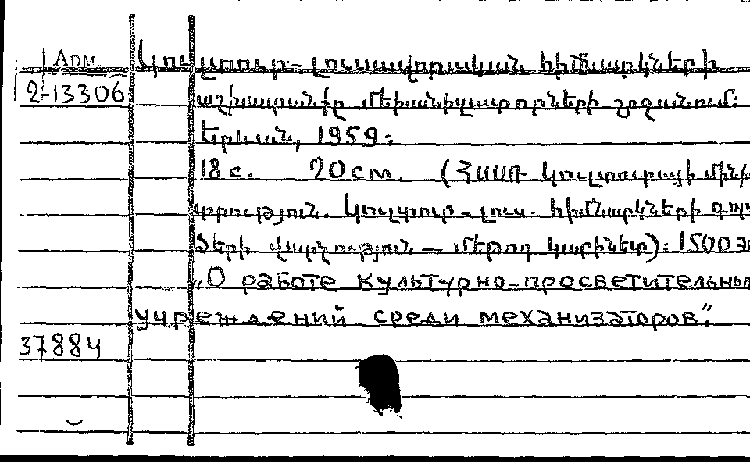 Арм. Կուլտուր-լուսավորական հիմնարկների
2-13306 աշխատանքը մեխանիզատորների շրջանում։
Երևան, 1959։
18 с. 20 cm. (ՀՍՍՌ Կուլտուրայի մինի
ստրություն. Կուլտուր-լուս. հիմնարկների գ
ծերի վարչություն — մեթոդ կաբինետ)։ 1500
„О работе культурно-просветительны
учреждений среди механизаторов".
37884